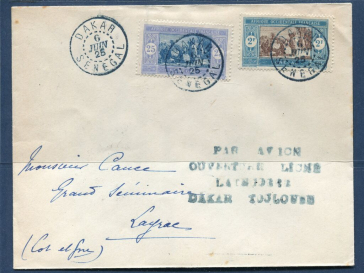 DAKAR
6
JUIN
25
SÉNÉGAL
JUIN
25
SÉNÉGAL
AFRIQUE OCCIDENTALE FRANÇAISE
2F
JUIN
25
SÉNÉGAL
PAR AVION
OUVERTURE LIGNE
LATECOERE
DAKAR TOULOUSE
Monsieur Cance
Grand Séminaire
Layrac
(Lot et Gne)